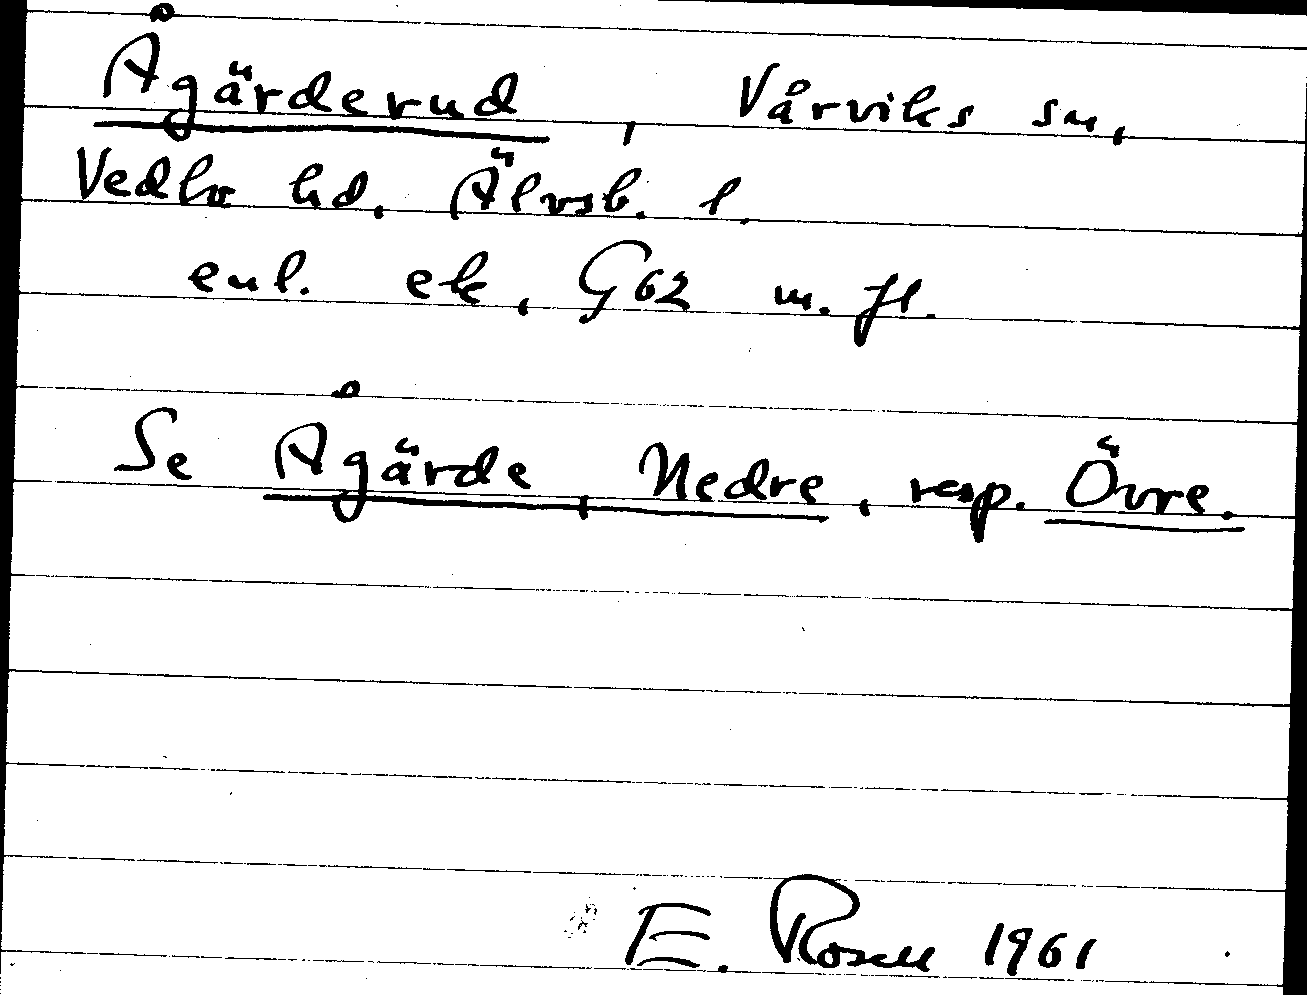 Ågärderud, Vårviks sn,
Vedbo hd. Älvsb. l.
enl. ek, G62 m. fl.
Se Ågärde, Nedre, resp. Övre.
E. Rosell 1961